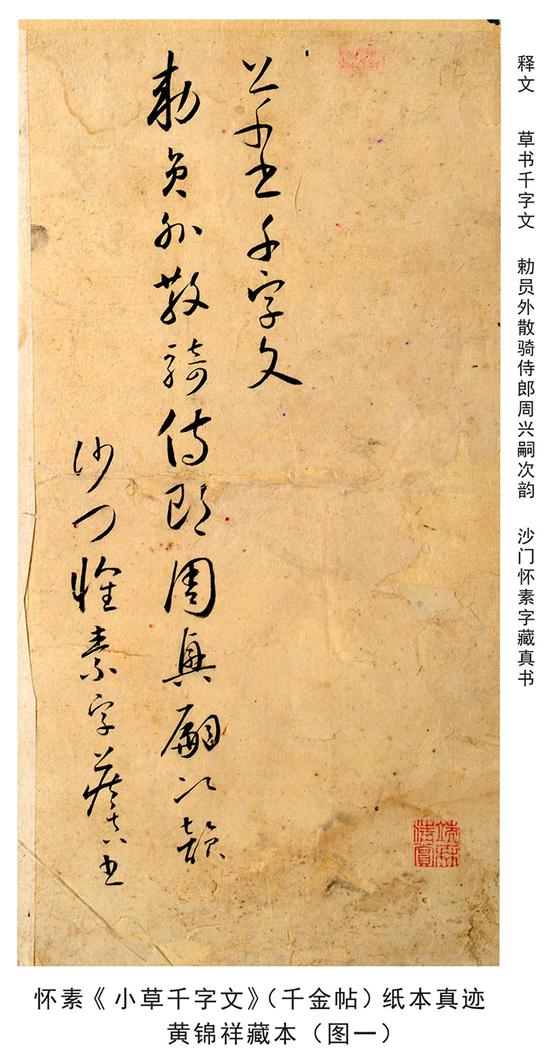 草书千字文
勅员外散骑侍郎周兴嗣次韵
沙门怀素字藏真书
释文 草书千字文 勅员外散骑侍郎周兴嗣次韵 沙门怀素字藏真书
怀素《小草千字文》(千金帖)纸本真迹
黄锦祥藏本(图一)